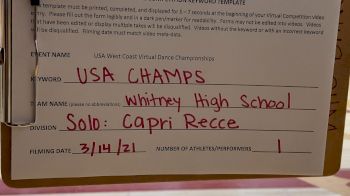 COMPETITION KEYWORD TEMPLATE
template must be printed, completed, and displayed for 5 – 7 seconds at the beginning of your Virtual Competition video
entry. Please fill out the form legibly and in a dark pen/marker for readability. Forms may not be edited into videos. Videos
that have been edited or display multiple takes will be disqualified. Videos without the keyword or with an incorrect keyword
will be disqualified. Filming date must match video meta-data.
EVENT NAME USA West Coast Virtual Dance Championships
KEYWORD USA CHAMPS
TEAM NAME (please no abbreviations) Whitney High School
DIVISION Solo: Capri Recce
FILMING DATE 3/14/21 NUMBER OF ATHLETES/PERFORMERS 1